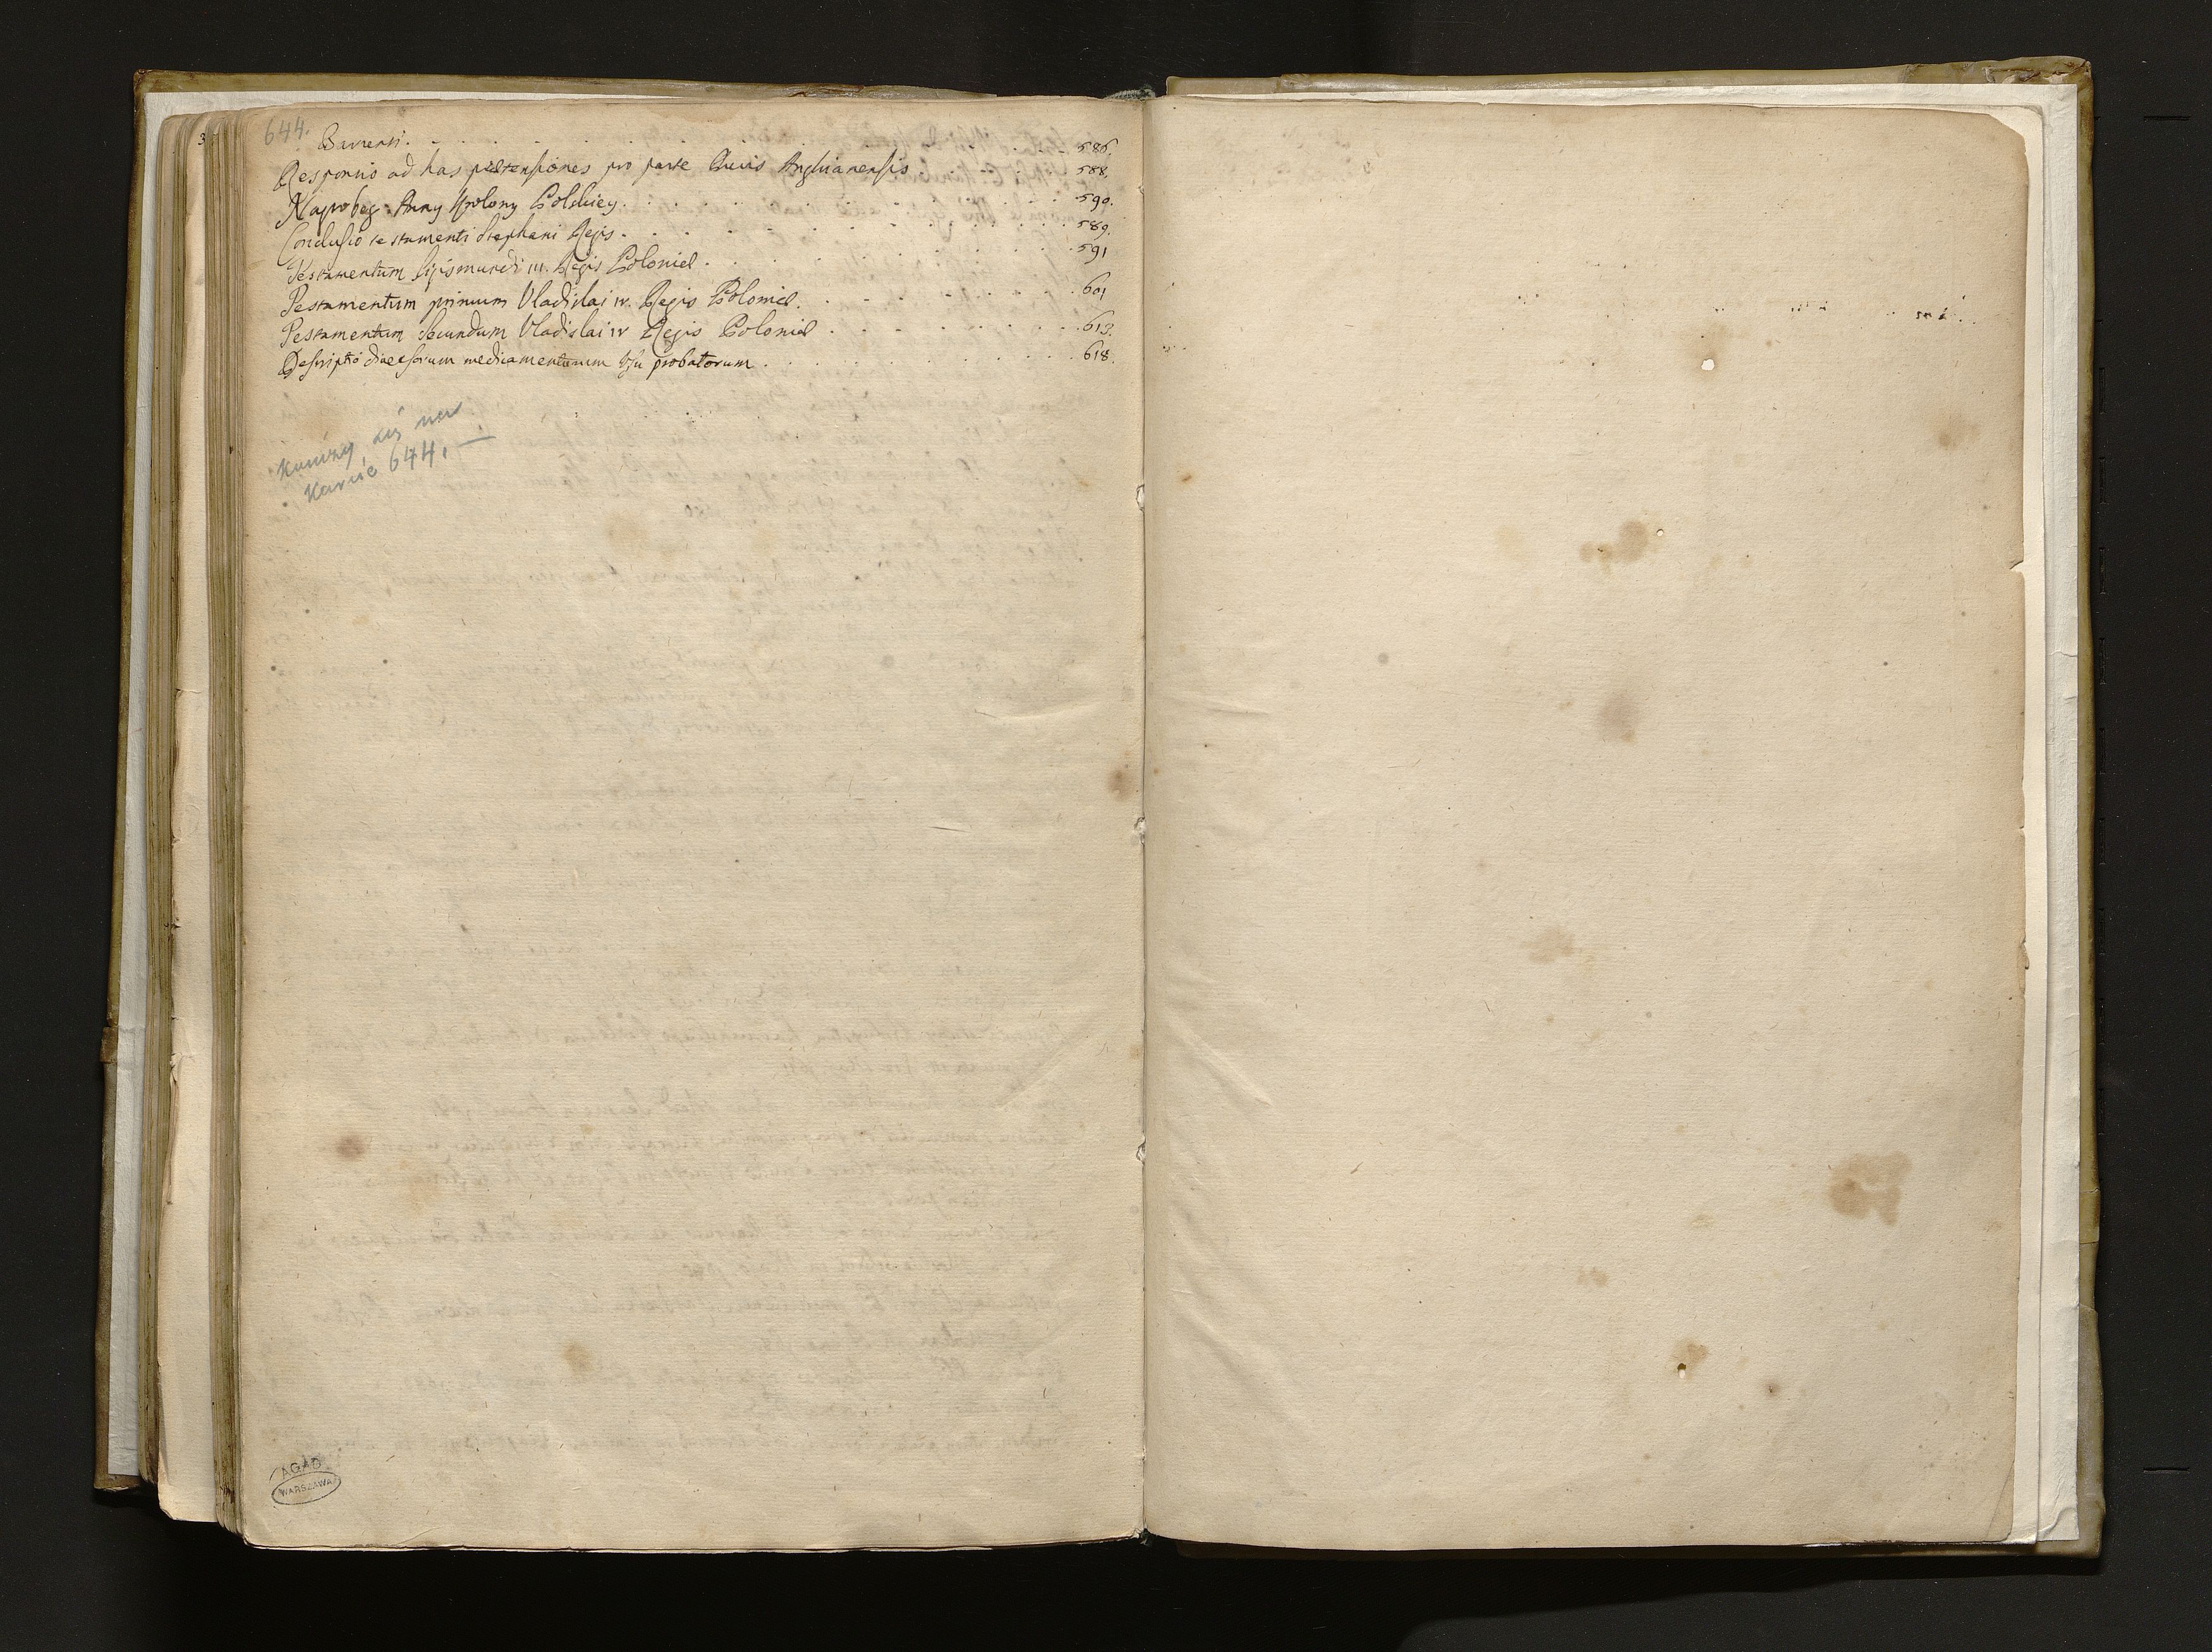 644.
3
Bavieri. . . . . . . . . . . . . 586.
Responsio ad has prætensiones pro parte Ducis Anghianensis . . . . . 588.
Nagrobeg Anny Krolony Polskiey. . . . . . . . . . . 590.
Conclusio testamenti Stephani Regis . . . . . . . . . . . 589.
Testamentum Sigismundi III. Regis Poloniæ . . . . . . . . . 591
Testamentum primum Vladislai IV. Regis Poloniæ. . . . . . . . . 601
Testamentum secundum Vladislai IV Regis Poloniæ . . . . . . . . 613.
Descriptio diversorum medicamentorum usu probatorum . . . . . . . . . 618.
Kończy się na
karcie 644. —
AGAD
WARSZAWA